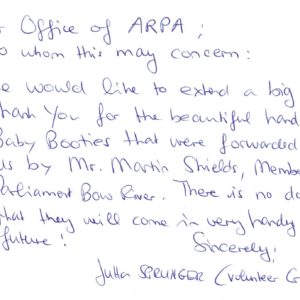 Office of ARPA;
whom this may concern:
would like to extend a big
Thank You for the beautiful hand
Baby Booties that were forwarded
us by Mr. Martin Shields, Member
Parliament Bow River. There is no do
that they will come in very handy
future! Sincerely;
SPRUNGER (Volunteer